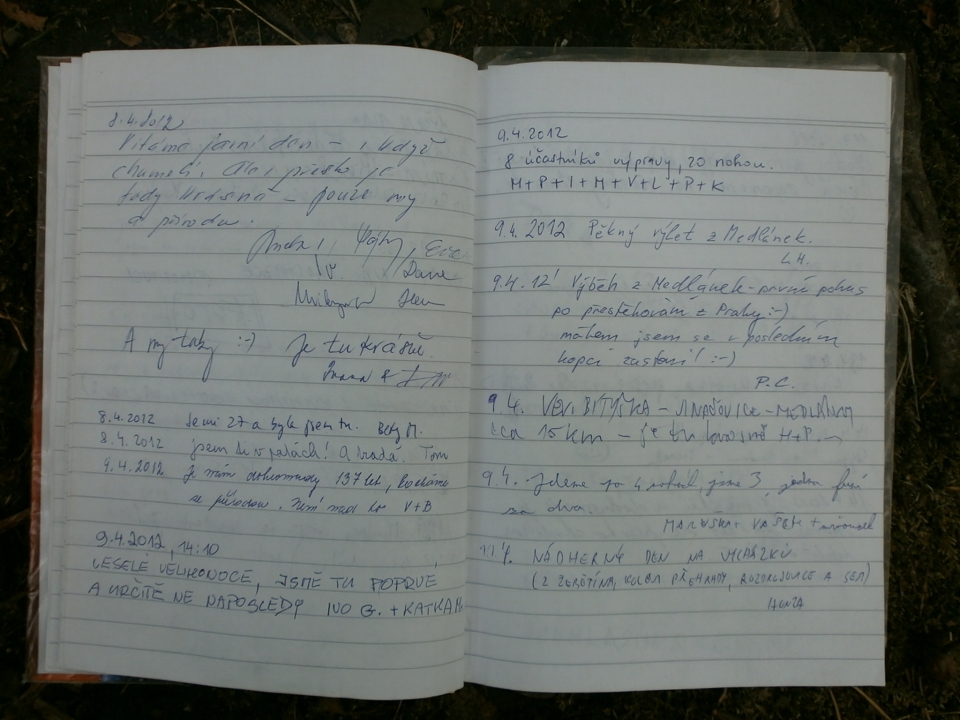 8.4.2012
Vítáme jarní den – i když
chumelí, ale i přesto je
tady krásně – pouze my
a příroda.
Dana
A my taky :-) Je tu krásně.
8.4.2012 Je mi 27 a byla jsem tu. Bety M.
8.4.2012 jsem tu v patách! O hradá. Tom
9.4.2012 Je nám dohromady 137 let, kocháme
se přírodou. Není nad to V+B
9.4.2012, 14:10
VESELÉ VELIKONOCE, JSME TU POPRVÉ
A URČITĚ NE NAPOSLEDY IVO G. + KATKA
9.4.2012
8 účastníků výpravy, 20 nohou.
M+P+I+M+V+L+P+K
9.4.2012 Pěkný výlet z Medlánek.
L.H.
9.4.12! Výběh z Medlánek - první pokus
po přestěhování z Prahy :-)
málem jsem se v posledním
kopci zastavil :-)
P.C.
9.4. VEV. BITÝŠKA – – MEDLÁNKY
cca 15 km – je tu krásně H+P.
9.4. Jdeme po 4 nohách, jsme 3, jeden
za dva.
MARUŠKA + VAŠEK +
NÁDHERNÝ DEN NA VYCHÁZKU
(Z KOLEM PŘEHRADY, ROZDROJOVICE A SEM)
HONZA